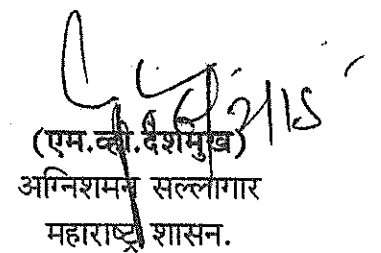 (एम.व्ही.देशमुख)
अग्निशमन सल्लागार
महाराष्ट्र शासन.